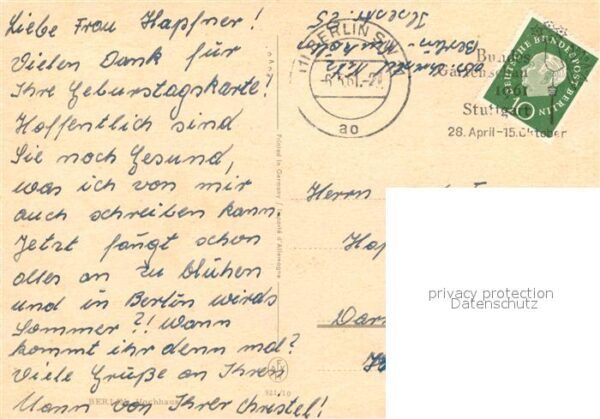 Liebe Frau Hapfner!
Vielen Dank für
Ihre Geburstagskarte!
Hoffentlich sind
Sie noch Gesund,
was ich von mir
auch schreiben kann.
Jetzt fängt schon
alles an zu blühen
und in Berlin wirds
Sommer?! Wann
kommt ihr denn mal?
Viele Grüße an Ihren
Mann von Ihrer Christel!
BERLIN, Hochhaus
Printed in Germany / Imprimé d'Allemagne
921/10
Berlin-Neukölln
BERLIN SW
61
ao
Bundes
Gartenschau
1961
Stuttgart
28. April-15. Oktober
DEUTSCHE BUNDESPOST BERLIN
10
Herrn
Hap
Dar
privacy protection
Datenschutz